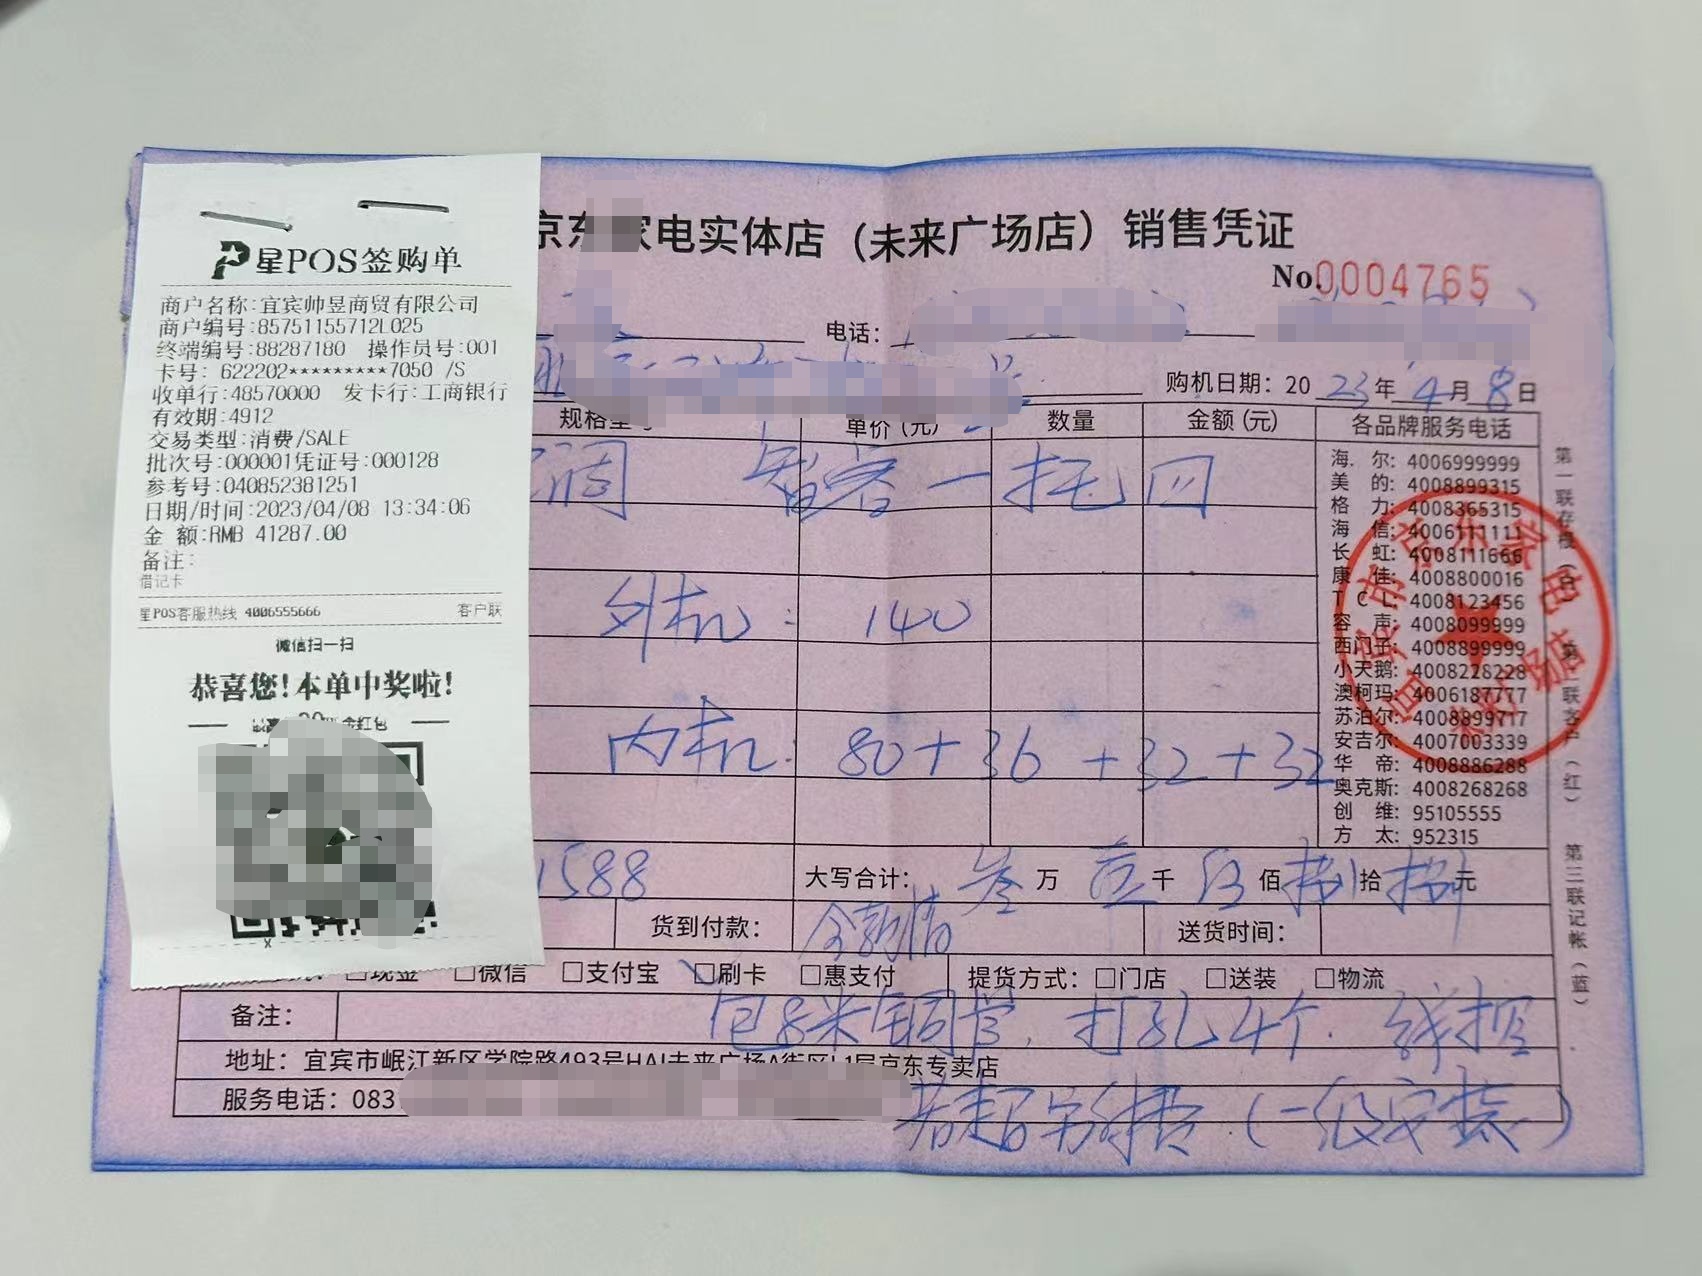 P星POS签购单
商户名称:宜宾帅昱商贸有限公司
商户编号:85751155712L025
终端编号:88287180 操作员号:001
卡号: 622202*********7050 /S
收单行:48570000 发卡行:工商银行
有效期:4912
交易类型:消费/SALE
批次号:000001凭证号:000128
参考号:040852381251
日期/时间:2023/04/08 13:34:06
金 额:RMB 41287.00
备注:
借记卡
星POS客服热线 4006555666 客户联
微信扫一扫
恭喜您!本单中奖啦!
金红包
京东 家电实体店（未来广场店）销售凭证
No.0004765
电话:
购机日期: 2023年4月8日
规格型 单价(元) 数量 金额(元) 各品牌服务电话
调 智睿一拖四
外机: 140
内机: 80+36+32+32
海 尔: 4006999999
美 的: 4008899315
格 力: 4008365315
海 信: 4006111111
长 虹: 4008111666
康 佳: 4008800016
T C L: 4008123456
容 声: 4008099999
西门子: 4008899999
小天鹅: 4008228228
澳柯玛: 4006187777
苏泊尔: 4008899717
安吉尔: 4007003339
华 帝: 4008886288
奥克斯: 4008268268
创 维: 95105555
方 太: 952315
1588 大写合计: 叁万壹千伍佰捌拾捌元
货到付款: 全款清 送货时间:
□现金 □微信 □支付宝 □刷卡 □惠支付 提货方式: □门店 □送装 □物流
备注: 包8米铜管, 打孔4个. 线控
地址: 宜宾市岷江新区学院路493号HAI未来广场A街区L1层京东专卖店
服务电话: 083
若超另补费 (一级安装)
第一联存根(白) 第二联客户(红) 第三联记帐(蓝)